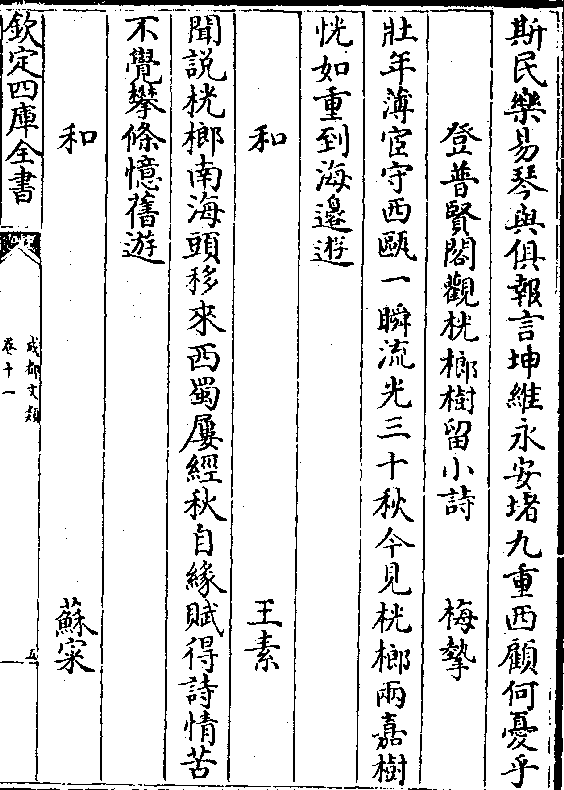 斯民樂易琴與俱報言坤維永安堵九重西顧何憂乎
登普賢閣觀桄榔樹留小詩 梅摯
壯年薄宦守西甌一瞬流光三十秋今見桄榔兩嘉樹
恍如重到海邊遊
和 王素
聞説桄榔南海頭移來西蜀屢經秋自緣賦得詩情苦
不覺攀條憶舊遊
和 蘇寀
欽定四庫全書
成都文類
卷十一
五